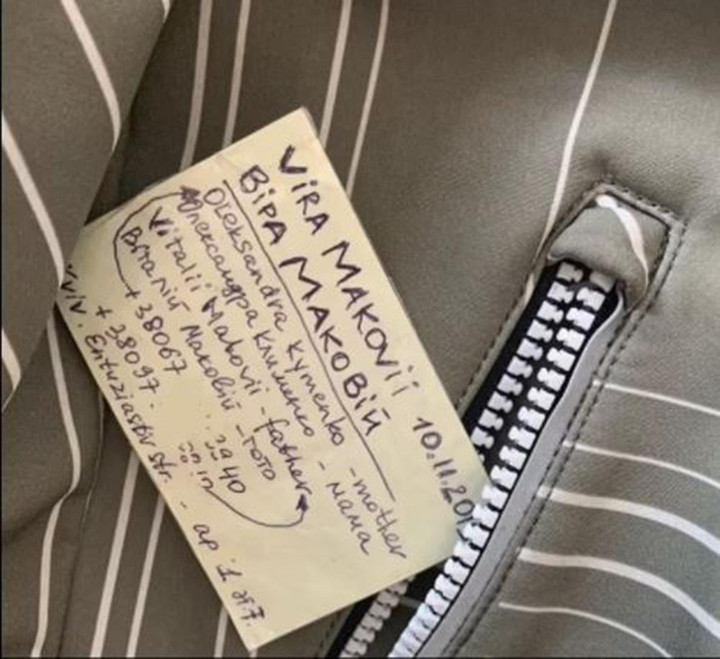 VIRA MAKOVII 10.11.20
ВІРА МАКОВІЙ
Oleksandra Kymenko - mother
Александра Клименко - мама
Vitalii Makovii - father
Віталій Маковій - тото
+38067 40
+38097
Kyiv. Entuziastiv str. - ap. 1